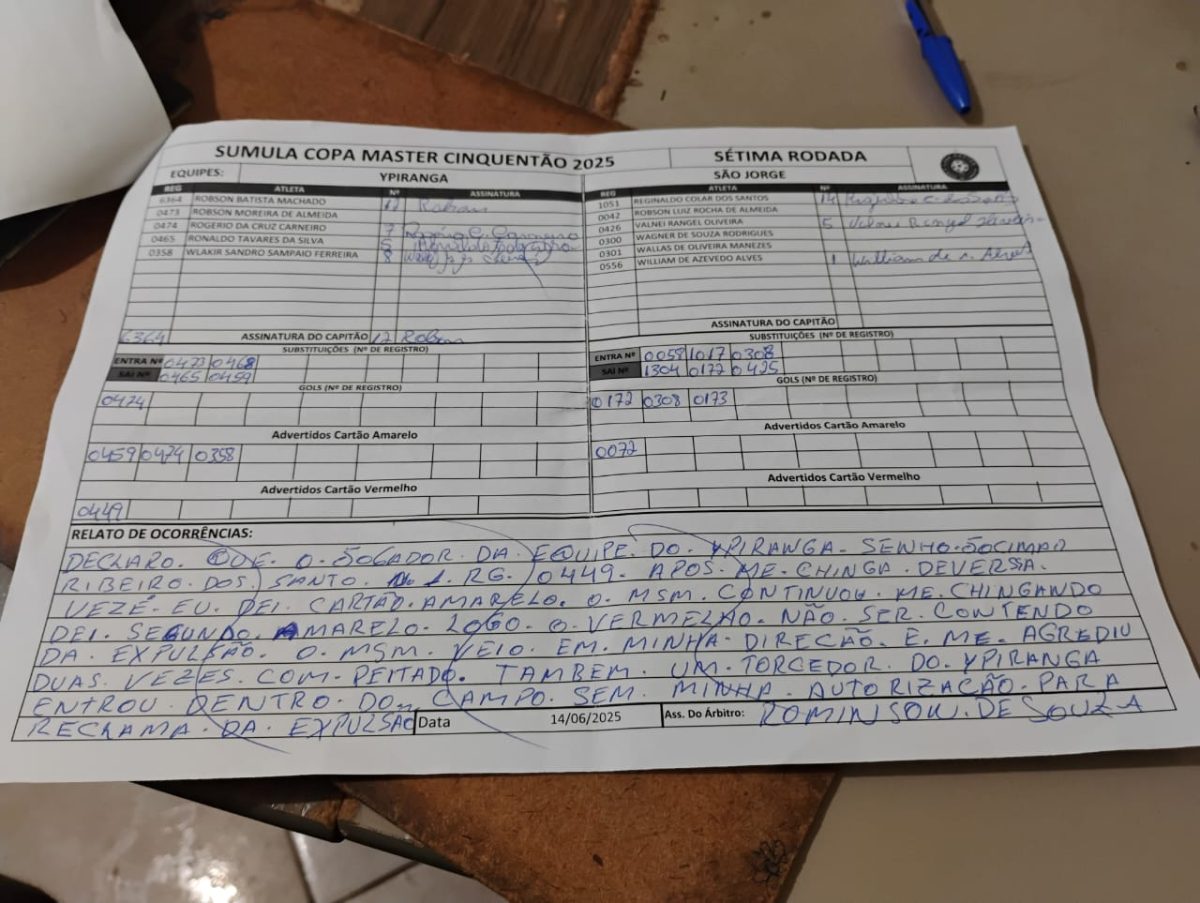 SUMULA COPA MASTER CINQUENTÃO 2025 SÉTIMA RODADA
EQUIPES: YPIRANGA SÃO JORGE
REG ATLETA Nº ASSINATURA REG ATLETA Nº ASSINATURA
6364 ROBSON BATISTA MACHADO 12 Robson 1051 REGINALDO COLAR DOS SANTOS 14
0473 ROBSON MOREIRA DE ALMEIDA 0042 ROBSON LUIZ ROCHA DE ALMEIDA
0474 ROGERIO DA CRUZ CARNEIRO 7 0426 VALNEI RANGEL OLIVEIRA 5
0465 RONALDO TAVARES DA SILVA 5 0300 WAGNER DE SOUZA RODRIGUES
0358 WLAKIR SANDRO SAMPAIO FERREIRA 8 0301 WALLAS DE OLIVEIRA MANEZES
0556 WILLIAM DE AZEVEDO ALVES 1 William de A. Alves
6364 ASSINATURA DO CAPITÃO 12 Robson ASSINATURA DO CAPITÃO
SUBSTITUIÇÕES (Nº DE REGISTRO) SUBSTITUIÇÕES (Nº DE REGISTRO)
ENTRA Nº 0473 0468 ENTRA Nº 0058 1017 0308
SAI Nº 0465 0459 SAI Nº 1304 0172 0425
GOLS (Nº DE REGISTRO) GOLS (Nº DE REGISTRO)
0474 0172 0308 0173
Advertidos Cartão Amarelo Advertidos Cartão Amarelo
0459 0474 0358 0072
Advertidos Cartão Vermelho Advertidos Cartão Vermelho
0449
RELATO DE OCORRÊNCIAS:
DECLARO. QUE. O. JOGADOR. DA EQUIPE. DO. YPIRANGA. SENHO. JOCIMAR
RIBEIRO. DOS. SANTO. RG. 0449. APOS. ME. CHINGA. DEVERSA.
VEZE. EU. DEI. CARTÃO. AMARELO. O. MSM. CONTINUOU. ME. CHINGANDO
DEI. SEGUNDO. AMARELO. LOGO. O. VERMELHO. NÃO. SER. CONTENDO
DA. EXPULSÃO. O. MSM. VEIO. EM. MINHA. DIREÇÃO. E. ME. AGREDIU
DUAS. VEZES. COM. PEITADO. TAMBEM. UM. TORCEDOR. DO. YPIRANGA
ENTROU. DENTRO. DO. CAMPO. SEM. MINHA. AUTORIZAÇÃO. PARA
RECLAMA. DA. EXPULSÃO Data 14/06/2025 Ass. Do Árbitro: ROMINSON. DE SOUZA